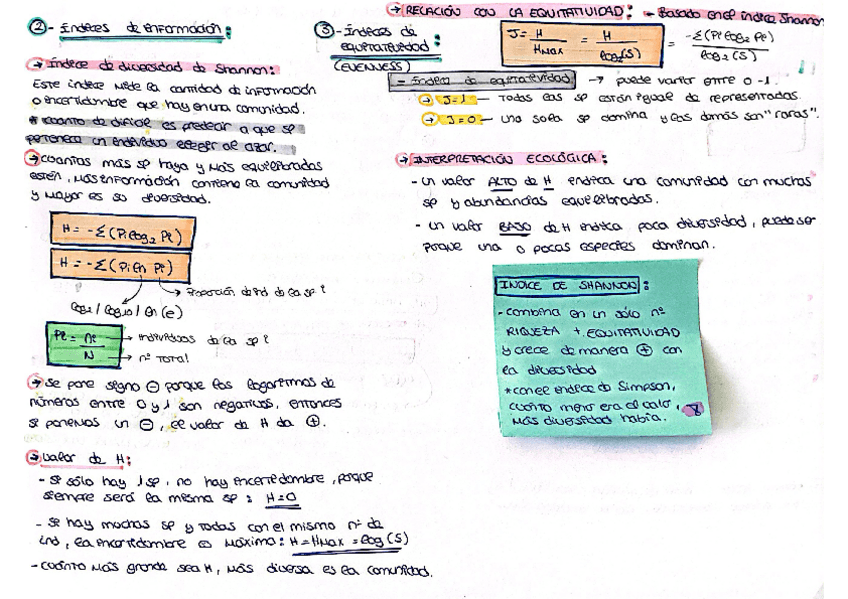 ② - Índices de información:
→ Índice de diversidad de Shannon:
Este índice mide la cantidad de información
o incertidumbre que hay en una comunidad.
* cuanto de difícil es predecir a que sp
pertenece un individuo elegido al azar.
→ cuantas más sp haya y más equilibradas
estén, más información contiene la comunidad
y mayor es su diversidad.
H = -Σ(Pi log₂ Pi)
H = -Σ(Pi ln Pi)
→ Proporción de ind de la sp i
log₂ / log₁₀ / ln (e)
Pi = ni / N
→ individuos de la sp i
→ nº total
→ Se pone signo ⊖ porque los logaritmos de
números entre 0 y 1 son negativos, entonces
si ponemos un ⊖, el valor de H da ⊕.
→ valor de H:
- Si sólo hay 1 sp, no hay incertidumbre, porque
siempre será la misma sp: H=0
- Si hay muchas sp y todas con el mismo nº de
ind, la incertidumbre es máxima: H=Hmax = log(S)
- Cuánto más grande sea H, más diversa es la comunidad.
③ - Índices de
equitatividad:
(EVENNESS)
→ RELACIÓN CON LA EQUITATIVIDAD: - Basado en el índice Shannon
J = H / HMAX = H / log₂(S) = -Σ(Pi log₂ Pi) / log₂(S)
= Índice de equitatividad → puede variar entre 0 - 1.
→ J=1 — Todas las sp están igual de representadas.
→ J=0 — Una sola sp domina y las demás son "raras".
→ INTERPRETACIÓN ECOLÓGICA:
- Un valor ALTO de H indica una comunidad con muchas
sp y abundancias equilibradas.
- Un valor BAJO de H indica poca diversidad, puede ser
porque una o pocas especies dominan.
INDICE DE SHANNON:
- combina en un sólo nº
RIQUEZA + EQUITATIVIDAD
y crece de manera ⊕ con
la diversidad
* con el índice de Simpson,
cuánto menor era el valor,
más diversidad había.